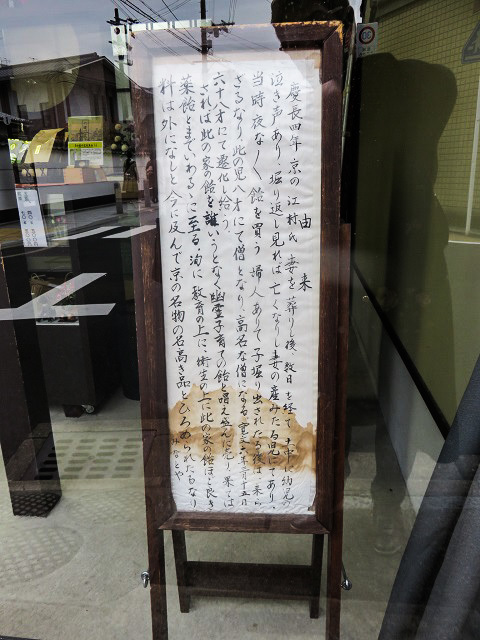 由来
慶長四年 京の江村氏 妻を葬りし後、数日を経て土中に幼児の
泣き声あり、堀り返し見れば亡くなりし妻の産みたる児にてあり、
当時夜な〱飴を買う婦人ありて子堀り出されたる後は、来ら
ざるなり、此の児八才にて僧となり、高名な僧になる 寛文六年三月十五日
六十八才にて遷化し給う、
されば此の家の飴を誰いうとなく幽霊子育ての飴と唱え盛んに売り果ては
薬飴とまでいわるゝに至る、洵に教育の上に衛生の上に此の家の飴ほど良き
料は外になしと、今に及んで京の名物の名高き品とひろめられたるなり